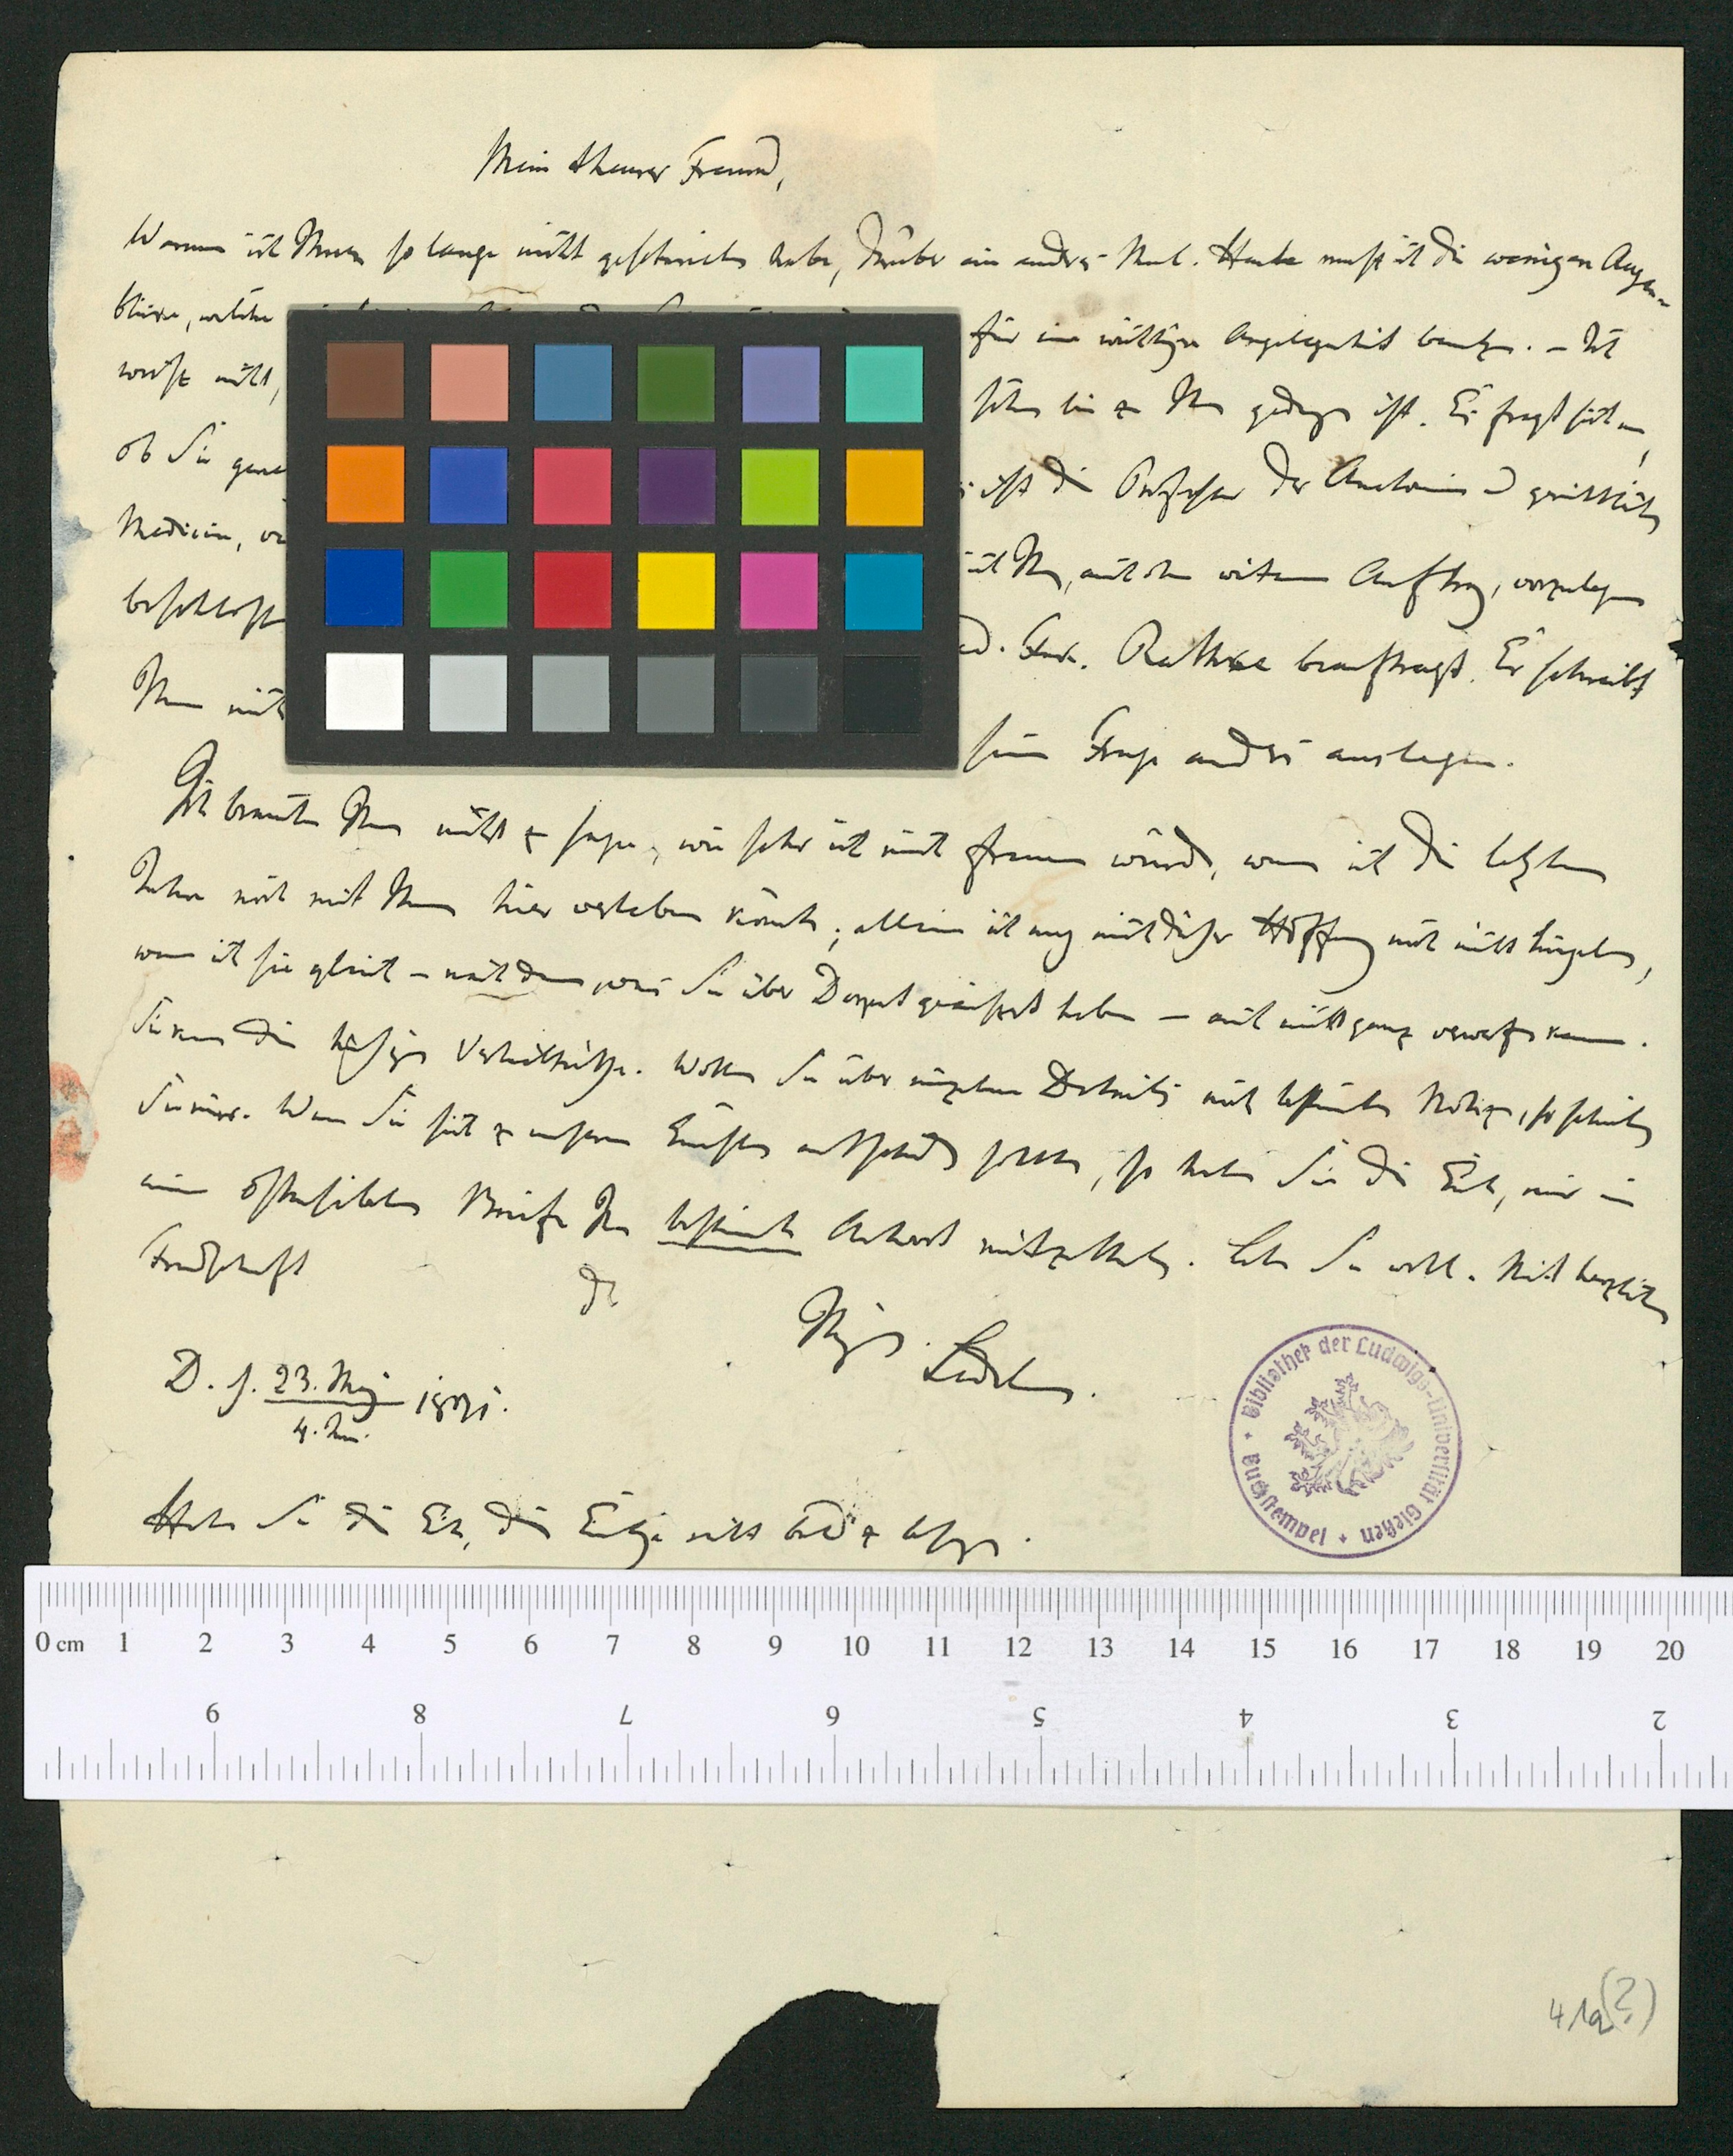 Mein theurer Freund,
Warum ich Ihnen so lange nicht geschrieben habe, darüber ein anderes Mal. Heute muß ich die wenigen Augen-
blicke, welche für eine wichtige Angelegenheit benutzen. – Ich
weiß nicht, schon bis zu Ihnen gedrungen ist. Es fragt sich nun,
ob Sie ist die Professur der Anatomie u gerichtlichen
Medicin, ich Ihnen, auch ohne weitern Auftrag, vorzulegen
beschlossen Rathke beauftragt. Er schreibt
Ihnen seine Frage anders auslegen.
Ich brauche Ihnen nicht zu sagen, wie sehr ich mich freuen würde, wenn ich die letzten
Jahre noch mit Ihnen hier verleben könnte; allein ich mag mich dieser Hoffnung noch nicht hingeben,
wenn ich sie gleich – nach dem, was Sie über Dorpat geäußert haben – auch nicht ganz verwerfen kann.
Sie kennen die hiesigen Verhältnisse. Wollen Sie über einzelne Details noch bestimmte Notizen, so schreiben
Sie mir. Wenn Sie sich zu unsern Gunsten entscheiden sollten, so haben Sie die Güte, mir in
einem ostensibeln Briefe Ihre bestimmte Antwort mitzutheilen. Leben Sie wohl. Mit herzlicher
Freundschaft
der
Ihrige. Ledebour.
D. d. 23. Maj 1831.
4. Jun.
Haben Sie die Güte, die Einlage recht bald zu besorgen.
Bibliothek der Ludwigs-Universität Gießen
Buchstempel
0 cm 1 2 3 4 5 6 7 8 9 10 11 12 13 14 15 16 17 18 19 20
9 8 7 6 5 4 3 2
41a(?)